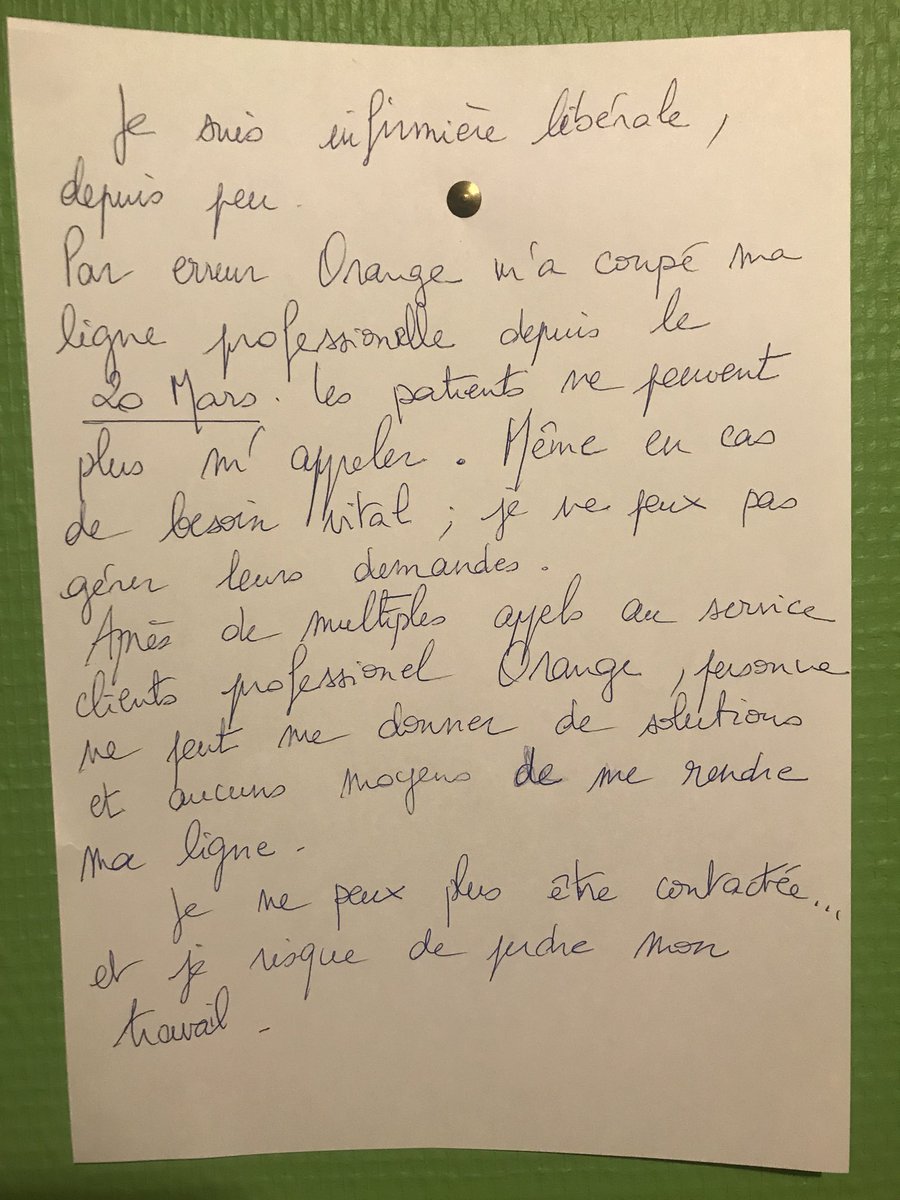 Je suis infirmière libérale,
depuis peu.
Par erreur Orange m'a coupé ma
ligne professionelle depuis le
20 Mars. Les patients ne peuvent
plus m'appeler. Même en cas
de besoin vital ; je ne peux pas
gérer leurs demandes.
Après de multiples appels au service
clients professionel Orange, personne
ne peut me donner de solutions
et aucuns moyens de me rendre
ma ligne.
Je ne peux plus être contactée...
et je risque de perdre mon
travail.